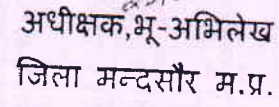 अधीक्षक,भू-अभिलेख
जिला मन्दसौर म.प्र.